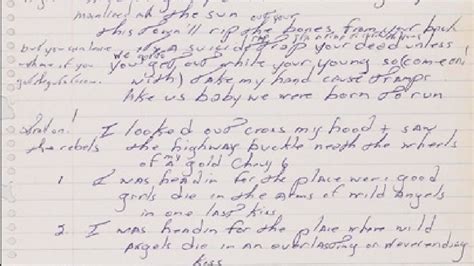 at the sun
out your
this town'll rip the bones from your back
but you can leave
its a suicide trap your dead unless
you get out while your young so (come on
with) take my hand cause tramps
like us baby we were born to run
I looked out cross my hood + saw
the rebels the highway buckle neath the wheels
of a my gold Chevy 6
1 I was headin for the place were good
girls die in the arms of wild Angels
in one last kiss
2. I was headin for the place where wild
Angels die in an everlasting or never ending
kiss